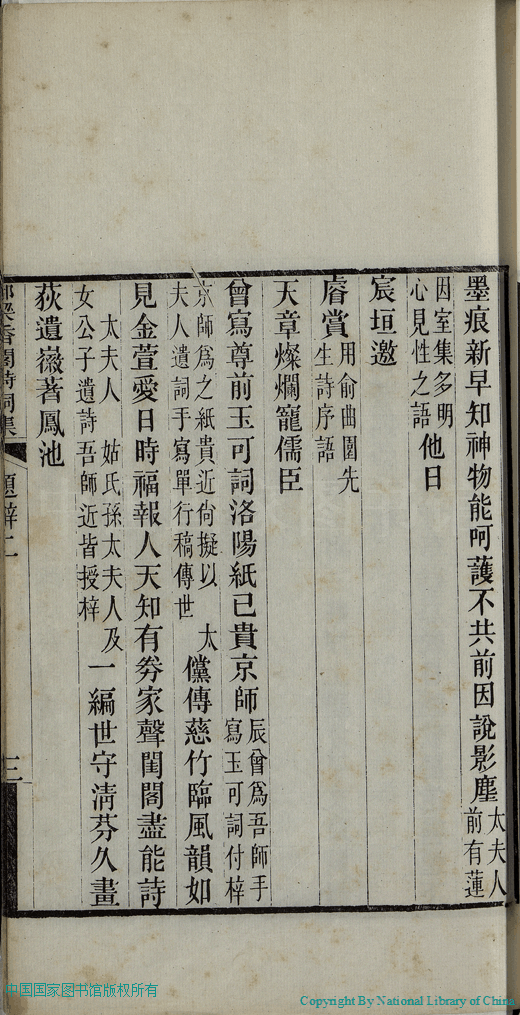 墨痕新早知神物能呵護不共前因說影塵太夫人前有蓮
因室集多明心見性之語他日
宸垣邀
睿賞用俞曲園先生詩序語
天章燦爛寵儒臣
曾寫尊前玉可詞洛陽紙已貴京師辰曾爲吾師手寫玉可詞付梓
京師爲之紙貴近尙擬以 太夫人遺詞手寫單行稿傳世儻傳慈竹臨風韻如
見金萱愛日時福報人天知有劵家聲閨閣盡能詩
太夫人 姑氏孫太夫人及女公子遺詩吾師近皆授梓一編世守淸芬久畫
荻遺徽著鳳池
香閣詩詞集 題辭二 三
中国国家图书馆版权所有
Copyright By National Library of China